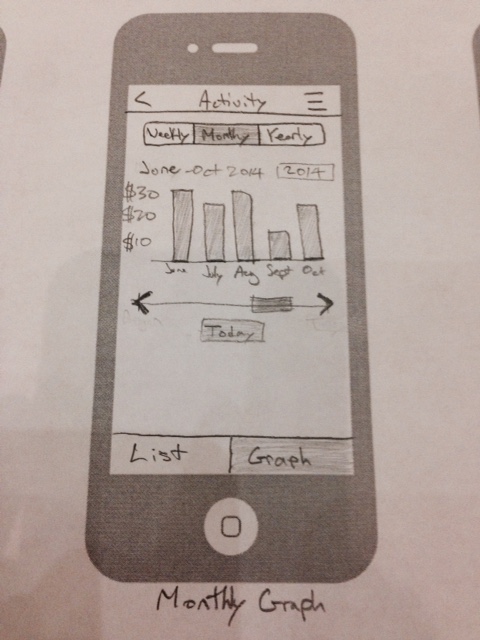 < Activity
Weekly Monthly Yearly
June -Oct 2014 2014
$30
$20
$10
June July Aug Sept Oct
Today
List Graph
Monthly Graph